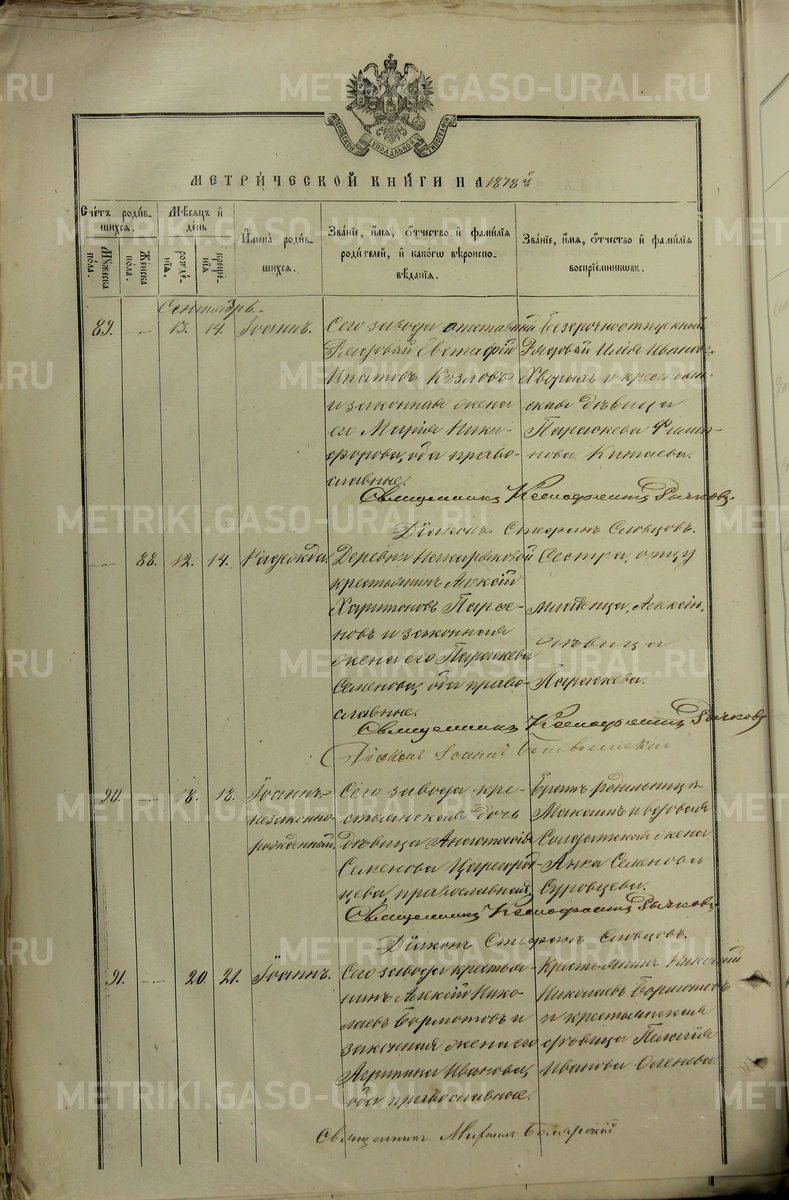 МОСКОВСКОЙ СѴНОДАЛЬНОЙ ТИПОГРАФІИ
МЕТРИ́ЧЕСКОЙ КНИ́ГИ НА 1878й
Сче́тъ роди́в-
шихся.
Мꙋ́жеска
по́ла.
Же́нска
по́ла.
Мѣ́сяцъ и
де́нь
рожде́-
нїѧ.
креще́-
нїѧ
И҆мена̀ роди́в-
шихсѧ.
Зва́нїе, и҆́мѧ, ѻ҆́тчество и҆ фами́лїѧ
роди́телей, и҆ како́гѡ вѣроиспо-
вѣ́данїѧ.
Зва́нїе, и҆́мѧ, ѻ҆́тчество и҆ фами́лїѧ
воспрїе́мникѡвъ.
Сентябрь.
89. — 13. 14. Іоаннъ.
Сего завода отставный
Рядовой Евстафій
Ипатовъ Козловъ
и законная жена
его Марія Ники-
форова, оба право-
славные.
Безсрочноотпускный
Рядовой Илья Иванов
и крестьян-
ская дѣвица
Параскева Филип-
пова Китаева.
Священникъ Ксенофонтъ Рычковъ.
Діаконъ Стефанъ Словцовъ.
— 88. 12. 14. Надежда.
Деревни
крестьянинъ Алексій
Харитоновъ Парѳе-
новъ и законная
жена его Параскева
Семенова, оба право-
славные.
Сестра, отцу
младенца, Алексію,
дѣвица
Параскева.
Священникъ Ксенофонтъ Рычковъ
Діаконъ Іоаннъ
90. — 18. 18. Іоаннъ
незаконно-
рожденный.
Сего завода кре-
стьянская дочь
дѣвица Анастасія
Семенова Царегород-
цева, православная.
Братъ родильницы
Максимъ и вдовая
Солдатская жена
Анна Семенова
Суровцева.
Священникъ Ксенофонтъ Рычковъ.
Діаконъ Стефанъ Словцовъ.
91. — 20. 21. Іоаннъ.
Сего завода крестья-
нинъ Алексій Нико-
лаевъ Бормотовъ и
законная жена его
Агрипина Иванова,
оба православные.
Крестьянинъ Николай
Николаевъ Бормотовъ
и крестьянская
дѣвица Пелагія
Иванова Оленева.
Священникъ Михаилъ
METRIKI.GASO-URAL.RU